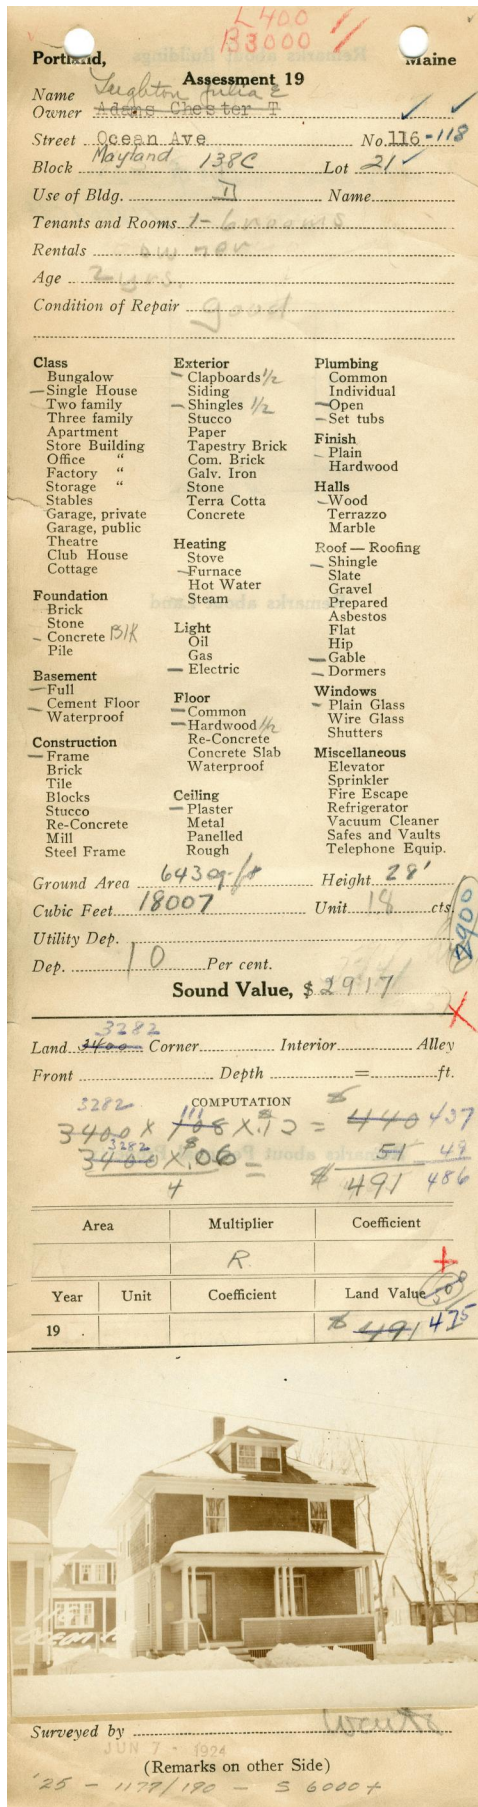 L400
B3000
Portland, Maine
Assessment 19
Name Leighton Julia E
Owner Adams Chester T
Street Ocean Ave No. 116-118
Block Mayland 138C Lot 21
Use of Bldg. D Name
Tenants and Rooms 1-6 rooms
Rentals owner
Age 2 yrs.
Condition of Repair good
Class
Bungalow
Single House
Two family
Three family
Apartment
Store Building
Office "
Factory "
Storage "
Stables
Garage, private
Garage, public
Theatre
Club House
Cottage
Foundation
Brick
Stone
Concrete Blk
Pile
Basement
Full
Cement Floor
Waterproof
Construction
Frame
Brick
Tile
Blocks
Stucco
Re-Concrete
Mill
Steel Frame
Exterior
Clapboards 1/2
Siding
Shingles 1/2
Stucco
Paper
Tapestry Brick
Com. Brick
Galv. Iron
Stone
Terra Cotta
Concrete
Heating
Stove
Furnace
Hot Water
Steam
Light
Oil
Gas
Electric
Floor
Common
Hardwood 1/2
Re-Concrete
Concrete Slab
Waterproof
Ceiling
Plaster
Metal
Panelled
Rough
Plumbing
Common
Individual
Open
Set tubs
Finish
Plain
Hardwood
Halls
Wood
Terrazzo
Marble
Roof — Roofing
Shingle
Slate
Gravel
Prepared
Asbestos
Flat
Hip
Gable
Dormers
Windows
Plain Glass
Wire Glass
Shutters
Miscellaneous
Elevator
Sprinkler
Fire Escape
Refrigerator
Vacuum Cleaner
Safes and Vaults
Telephone Equip.
Ground Area 643 sq. ft Height 28'
Cubic Feet 18007 Unit 18 cts.
2900
Utility Dep.
Dep. 10 Per cent.
Sound Value, $ 2917
3282
Land 3400 Corner Interior Alley
Front Depth = ft.
COMPUTATION
3282 111
3400 X 108 X .12 = $ 440 437
3282
3400 X $.06 = 51 49
4 $ 491 486
Area Multiplier Coefficient
R
Year Unit Coefficient Land Value 500
19 $ 491 475
116
Ocean Av
Surveyed by
JUN 7 - 1924
(Remarks on other Side)
'25 - 1177/190 - S 6000+